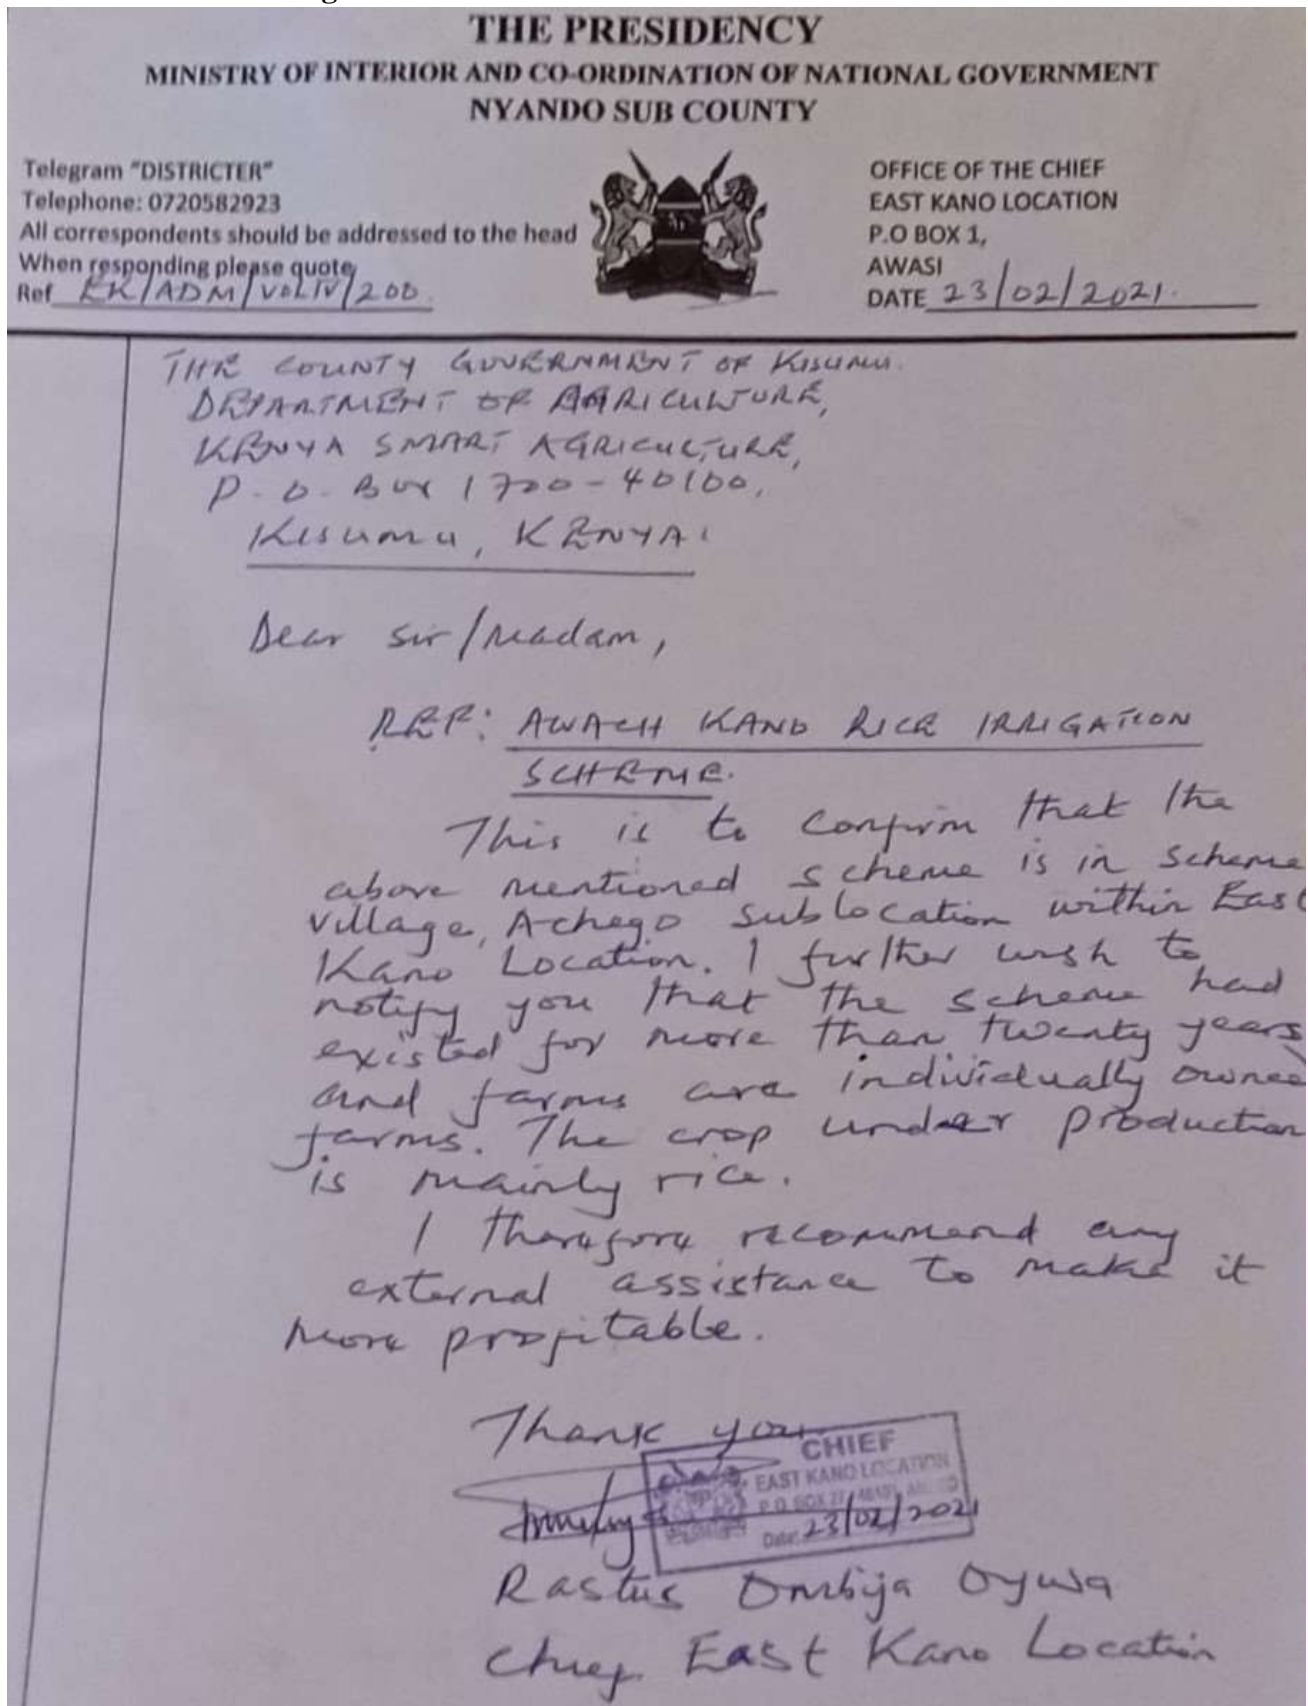 THE PRESIDENCY
MINISTRY OF INTERIOR AND CO-ORDINATION OF NATIONAL GOVERNMENT
NYANDO SUB COUNTY
Telegram "DISTRICTER"
Telephone: 0720582923
All correspondents should be addressed to the head
When responding please quote
Ref EK/ADM/VOL IV/200
OFFICE OF THE CHIEF
EAST KANO LOCATION
P.O BOX 1,
AWASI
DATE 23/02/2021.
THE COUNTY GOVERNMENT OF KISUMU.
DEPARTMENT OF AGRICULTURE,
KENYA SMART AGRICULTURE,
P.O. BOX 1700-40100,
KISUMU, KENYA.
Dear Sir/Madam,
REF: AWACH KANO RICE IRRIGATION
SCHEME.
This is to confirm that the
above mentioned scheme is in Scheme
Village, Achego sublocation within East
Kano Location. I further wish to
notify you that the scheme had
existed for more than twenty years
and farms are individually owned
farms. The crop under production
is mainly rice.
I therefore recommend any
external assistance to make it
more profitable.
Thank you
CHIEF
EAST KANO LOCATION
P.O. BOX
Date: 23/02/2021
Rastus Ombija Oywa
Chief East Kano Location